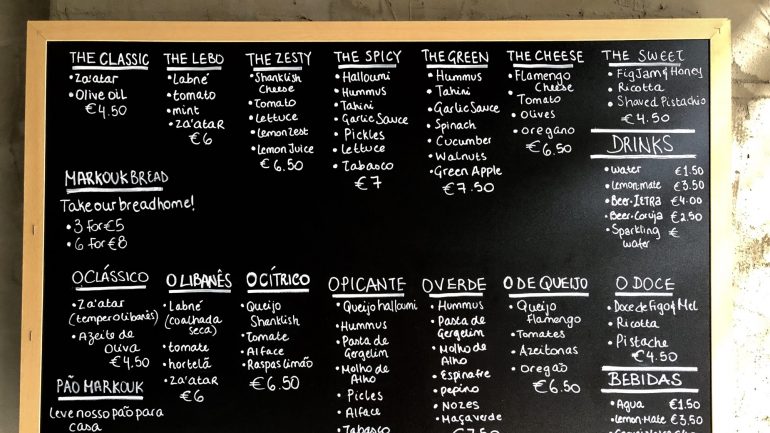 THE CLASSIC
• Za'atar
• Olive Oil
€4.50
THE LEBO
• Labné
• tomato
• mint
• Za'ataR
€6
THE ZESTY
• Shanklish
Cheese
• Tomato
• Lettuce
• Lemon Zest
• Lemon Juice
€6.50
THE SPICY
• Halloumi
• Hummus
• Tahini
• Garlic Sauce
• Pickles
• Lettuce
• Tabasco
€7
THE GREEN
• Hummus
• Tahini
• Garlic Sauce
• Spinach
• Cucumber
• Walnuts
• Green Apple
€7.50
THE CHEESE
• Flamengo
Cheese
• Tomato
• Olives
• oregano
€6.50
THE SWEET
• Fig Jam & Honey
• Ricotta
• Shaved Pistachio
€4.50
DRINKS
• Water €1.50
• Lemon-mate €3.50
• Beer-LETRA €4.00
• Beer-Coruja €2.50
• Sparkling €
Water
MARKOUK BREAD
Take our bread home!
• 3 for €5
• 6 for €8
O CLÁSSICO
• Za'atar
(tempero libanês)
• Azeite de
Oliva
€4.50
O LIBANÊS
• Labné
(coalhada
seca)
• tomate
• hortelã
• Za'ataR
€6
O CÍTRICO
• Queijo
Shanklish
• Tomate
• Alface
• Raspas limão
€6.50
O PICANTE
• Queijo halloumi
• Hummus
• Pasta de
Gergelim
• Molho de
Alho
• Picles
• Alface
• Tabasco
O VERDE
• Hummus
• Pasta de
Gergelim
• Molho de
Alho
• Espinafre
• pepino
• Nozes
• Maça verde
€7.50
O DE QUEIJO
• Queijo
Flamengo
• Tomates
• Azeitonas
• Oregão
€6.50
O DOCE
• Doce de Figo & Mel
• Ricotta
• Pistache
€4.50
BEBIDAS
• Agua €1.50
• Lemon-Mate €3.50
PÃO MARKOUK
leve nosso pão para
casa